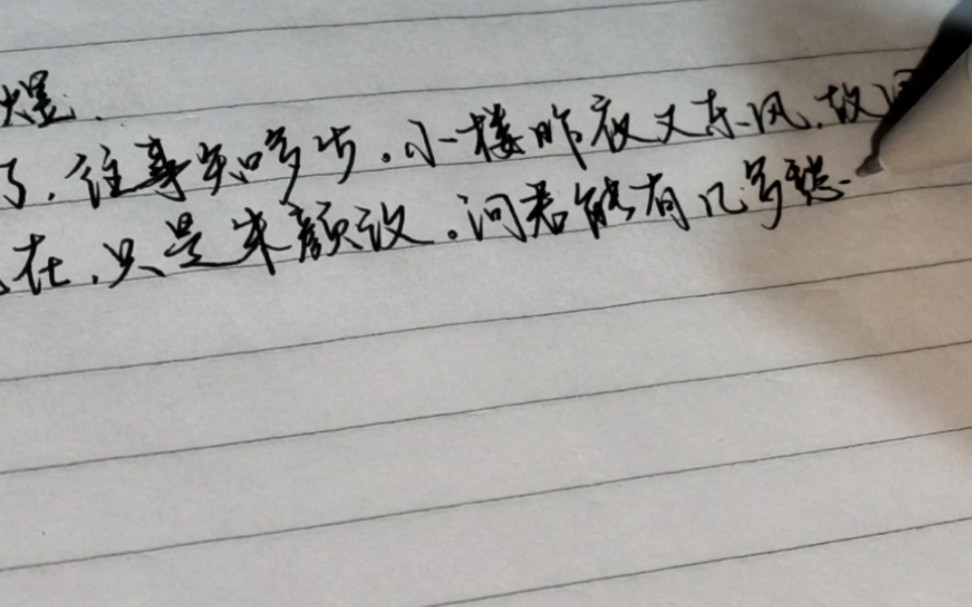 煜.
了.往事知多少。小楼昨夜又东风.故国
在.只是朱颜改。问君能有几多愁